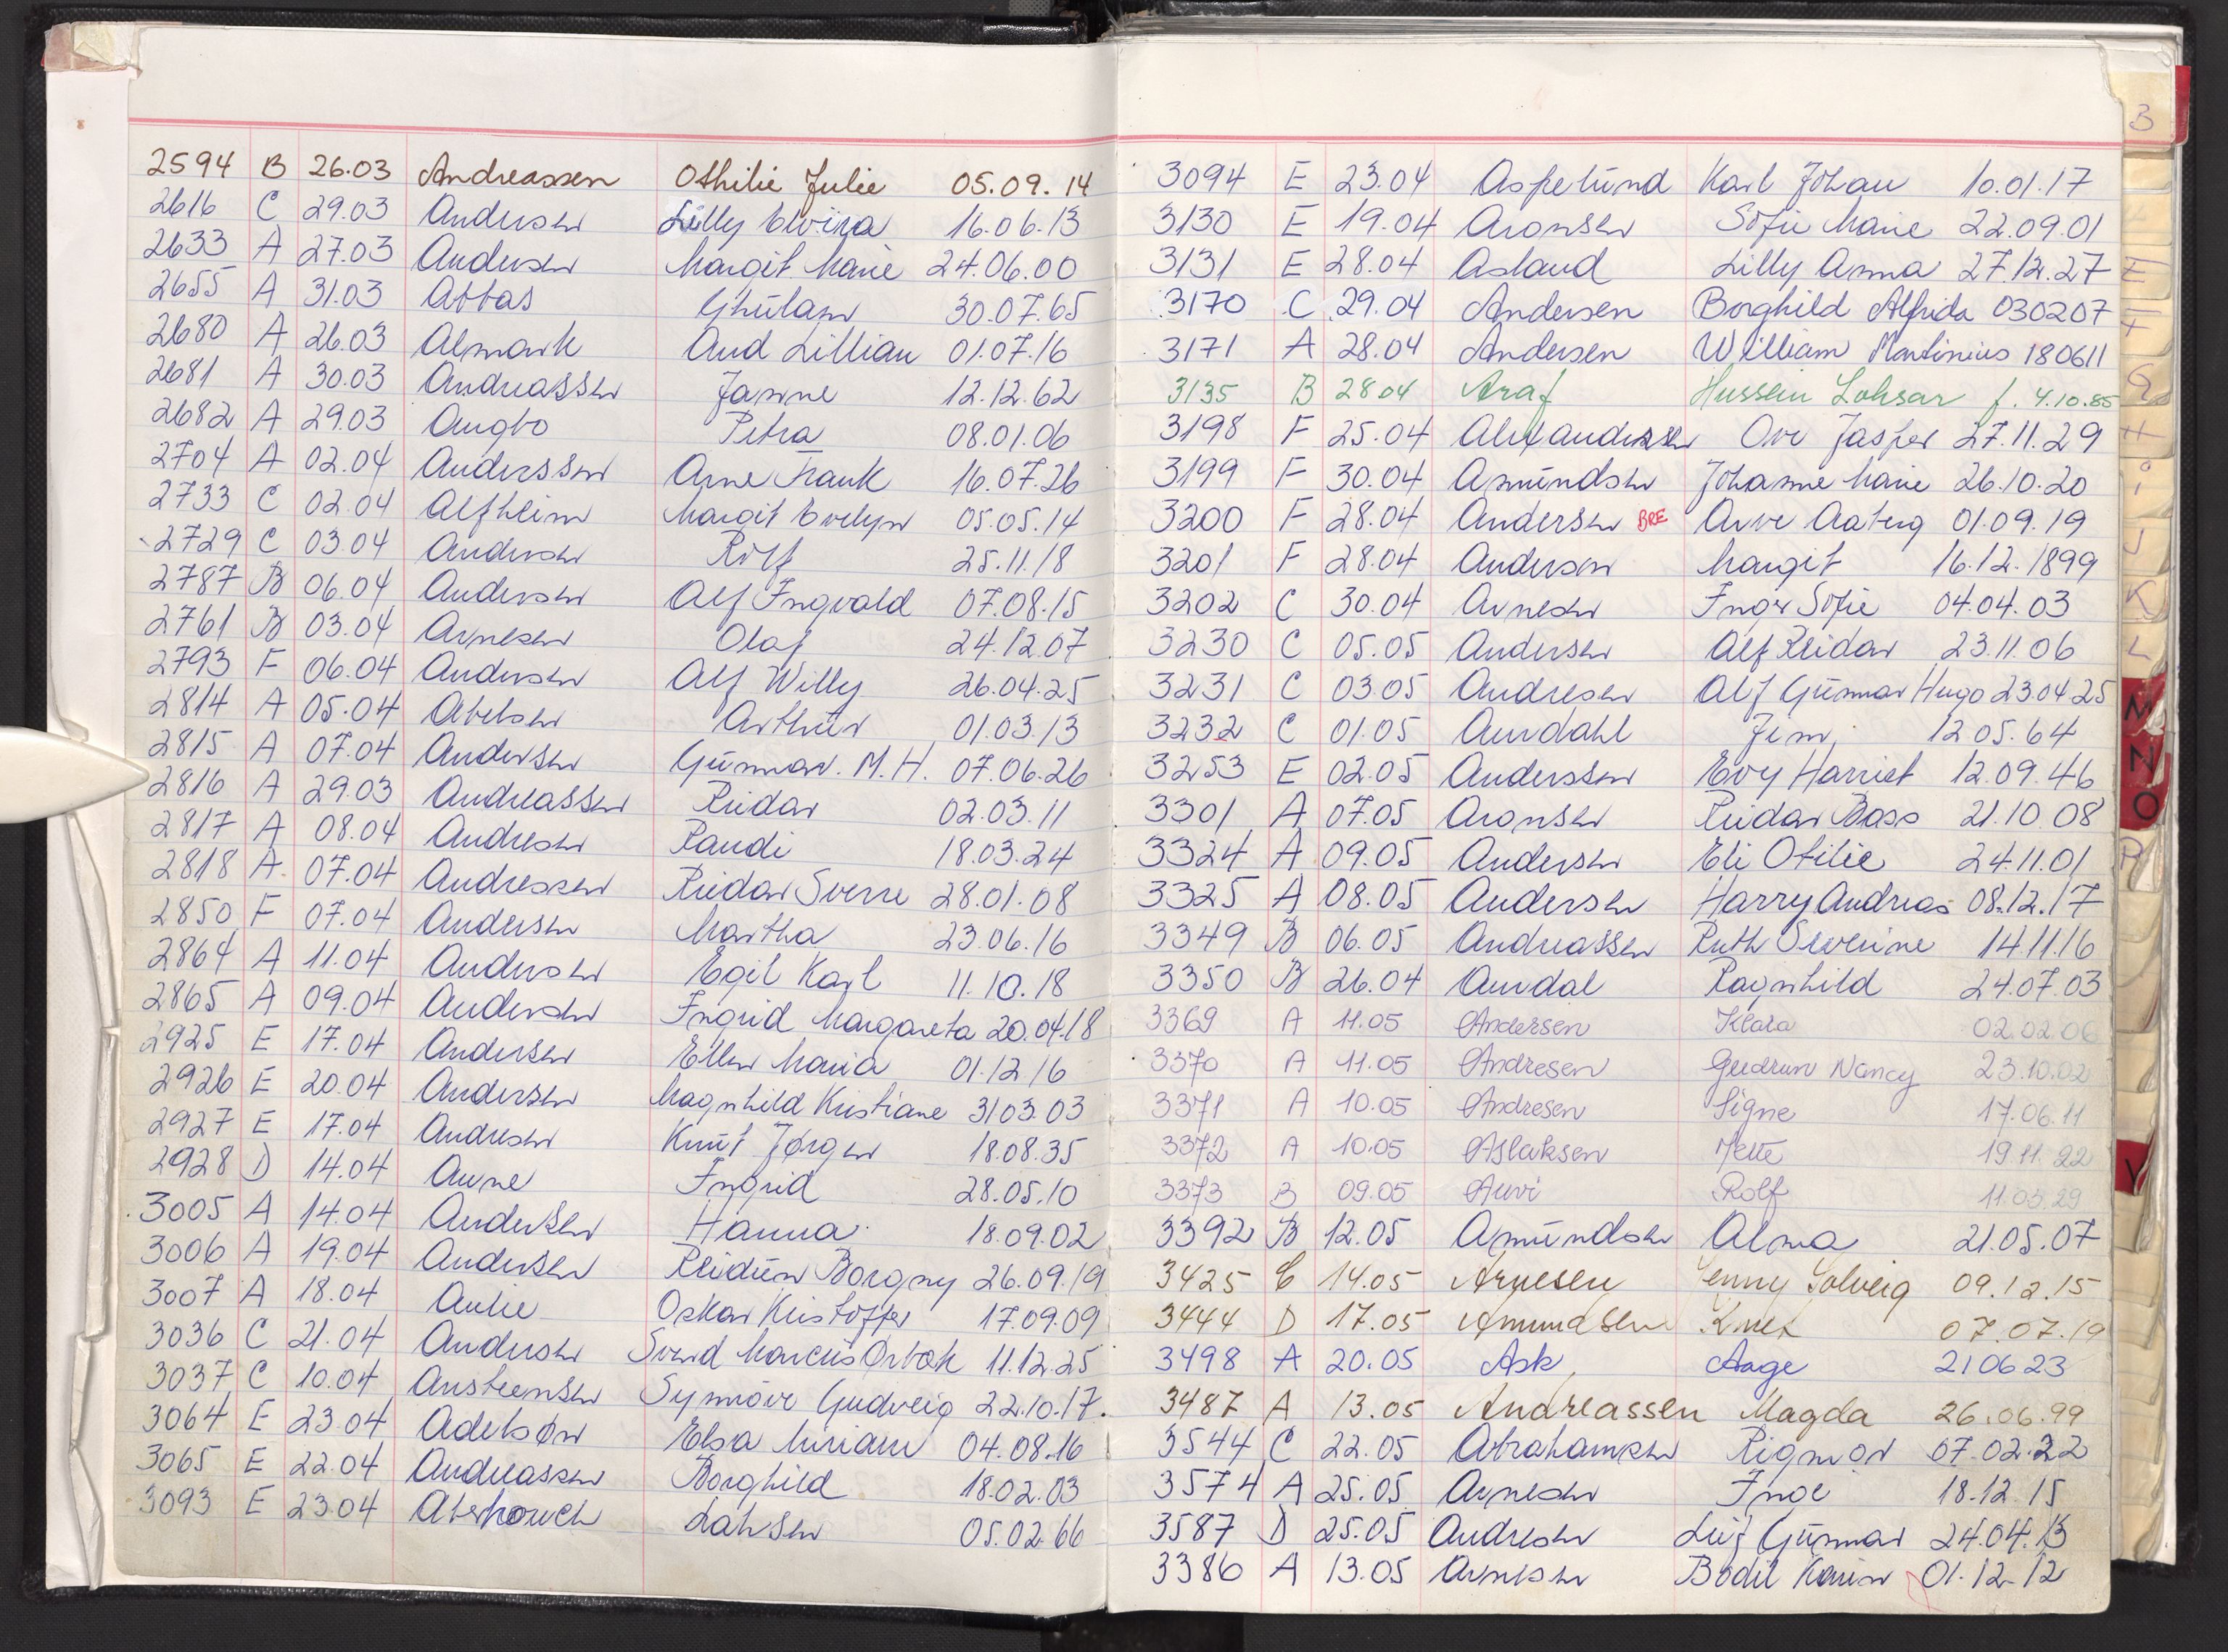 2594 B 26.03 Andreassen Othilie Julie 05.09.14
2616 C 29.03 Andersen Lilly Elvira 16.06.13
2633 A 27.03 Andersen Margit Marie 24.06.00
2655 A 31.03 Abbas Ghulam 30.07.65
2680 A 26.03 Almark Aud Lillian 01.07.16
2681 A 30.03 Andreassen Janne 12.12.62
2682 A 29.03 Angbo Petra 08.01.06
2704 A 02.04 Anderssen Arne Frank 16.07.26
2733 C 02.04 Alfheim Margit Evelyn 05.05.14
2729 C 03.04 Andersen Rolf 25.11.18
2787 B 06.04 Andersen Alf Ingvald 07.08.15
2761 B 03.04 Arnesen Olaf 24.12.07
2793 F 06.04 Andersen Alf Willy 26.04.25
2814 A 05.04 Abelsen Arthur 01.03.13
2815 A 07.04 Andersen Gunnar. M.H. 07.06.26
2816 A 29.03 Andreassen Reidar 02.03.11
2817 A 08.04 Andresen Randi 18.03.24
2818 A. 07.04 Andressen Reidar Sverre 28.01.08
2850 F 07.04 Andersen Martha 23.06.16
2864 A 11.04 Andersen Egil Karl 11.10.18
2865 A 09.04 Andersen Ingrid Margareta 20.04.18
2925 E 17.04 Andersen Ellen Maria 01.12.16
2926 E 20.04 Andersen Magnhild Kristiane 31.03.03
2927 E 17.04 Andresen Knut Jørgen 18.08.35
2928 D 14.04 Aune Ingrid 28.05.10
3005 A 14.04 Andersen Hanna 18.09.02
3006 A 19.04 Andersen Reidun Borgny 26.09.19
3007 A 18.04 Aulie Oskar Kristoffer 17.09.09
3036 C 21.04 Andersen Svend Marcus Ørbæk 11.12.25
3037 C 10.04 Austeensen Synnøve Gudveig 22.10.17.
3064 E 23.04 Adelsøn Elsa Miriam 04.08.16
3065 E 22.04 Andreassen Borghild 18.02.03
3093 E 23.04 Aberkouch Lahsen 05.02.66
3
3094 E 23.04 Aspelund Karl Johan 10.01.17
3130 E 19.04 Aronsen Sofie Marie 22.09.01
3131 E 28.04 Asland Lilly Anna 27.12.27
3170 C 29.04 Andersen Borghild Alfrida 030207
3171 A 28.04 Andersen William Martinius 180611
3135 B 28.04 Araf Hussein Lohsar f. 4.10.85
3198 F 25.04 Alexandersen Ove Jasper 27.11.29
3199 F 30.04 Amundsen Johanne Marie 26.10.20
3200 F 28.04 Andersen BRE Arve Aaberg 01.09.19
3201 F 28.04 Andersen Margit 16.12.1899
3202 C 30.04 Arnesen Inger Sofie 04.04.03
3230 C 05.05 Andersen Alf Reidar 23.11.06
3231 C 03.05 Andresen Alf Gunnar Hugo 23.04.25
3232 C 01.05 Aurdahl Jim 12.05.64
3253 E 02.05 Anderssen Evy Harriet 12.09.46
3301 A 07.05 Aronsen Reidar Bass 21.10.08
3324 A 09.05 Andersen Eli Otilie 24.11.01
3325 A 08.05 Andersen Harry Andreas 08.12.17
3349 B 06.05 Andreassen Ruth Severine 14.11.16
3350 B 26.04 Aurdal Ragnhild 24.07.03
3369 A 11.05 Andersen Klara 02.02.06
3370 A 11.05 Andresen Gudrun Nancy 23.10.02
3371 A 10.05 Andresen Signe 17.06.11
3372 A 10.05 Aslaksen Mette 19.11.22
3373 B 09.05 Auvi Rolf 11.03.29
3392 B 12.05 Amundsen Alma 21.05.07
3425 C 14.05 Arnesen Jenny Solveig 09.12.15
3444 D 17.05 Amundsen Knut 07.07.19
3498 A 20.05 Ask Aage 210623
3487 A 13.05 Andreassen Magda 26.06.99
3544 C 22.05 Abrahamsen Rigmor 07.02.22
3574 A 25.05 Arnesen Inge 18.12.15
3587 D 25.05 Andresen Leif Gunnar 24.04.13
3386 A 13.05 Arnesen Bodil Karin 01.12.12
E
F
G
H
i
J
K
L
M
N
O
P
V